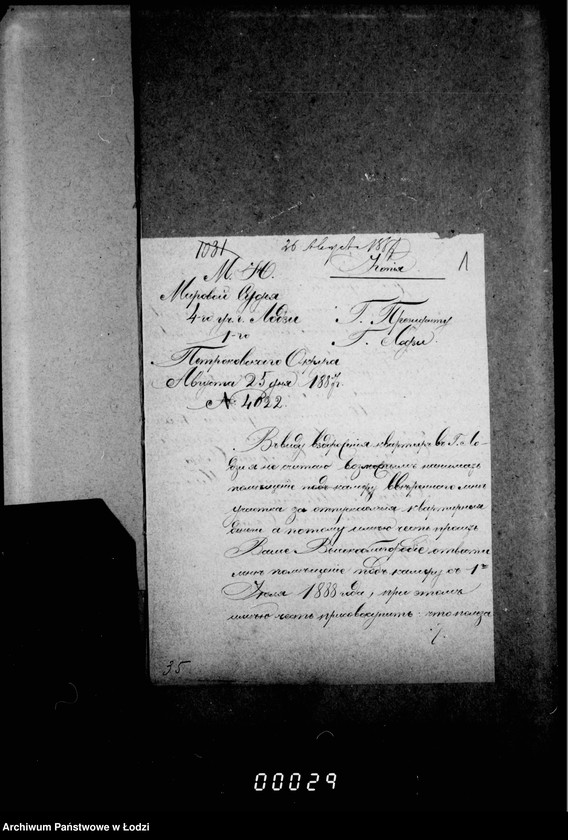 1031
26 Августа 1887
Копія
1
М. Ю.
Мировой Судья
4-го уч. г. Лодзи
1-го
Петроковскаго Округа
Августа 25 дня 1887 г.
№ 4022
Г. Президенту
Г. Лодзи.
Въ виду вздорожанія квартиръ въ г. Ло-
дзи я не считаю возможнымъ нанимать
помѣщеніе подъ камеру ввѣреннаго мнѣ
участка за отпускаемыя квартирныя
деньги а потому имѣю честь просить
Ваше Высокоблагородіе отвести
мнѣ помѣщеніе подъ камеру съ 1го
Іюля 1888 года, при этомъ
имѣю честь присовокупить что
35
00029
Archiwum Państwowe w Łodzi